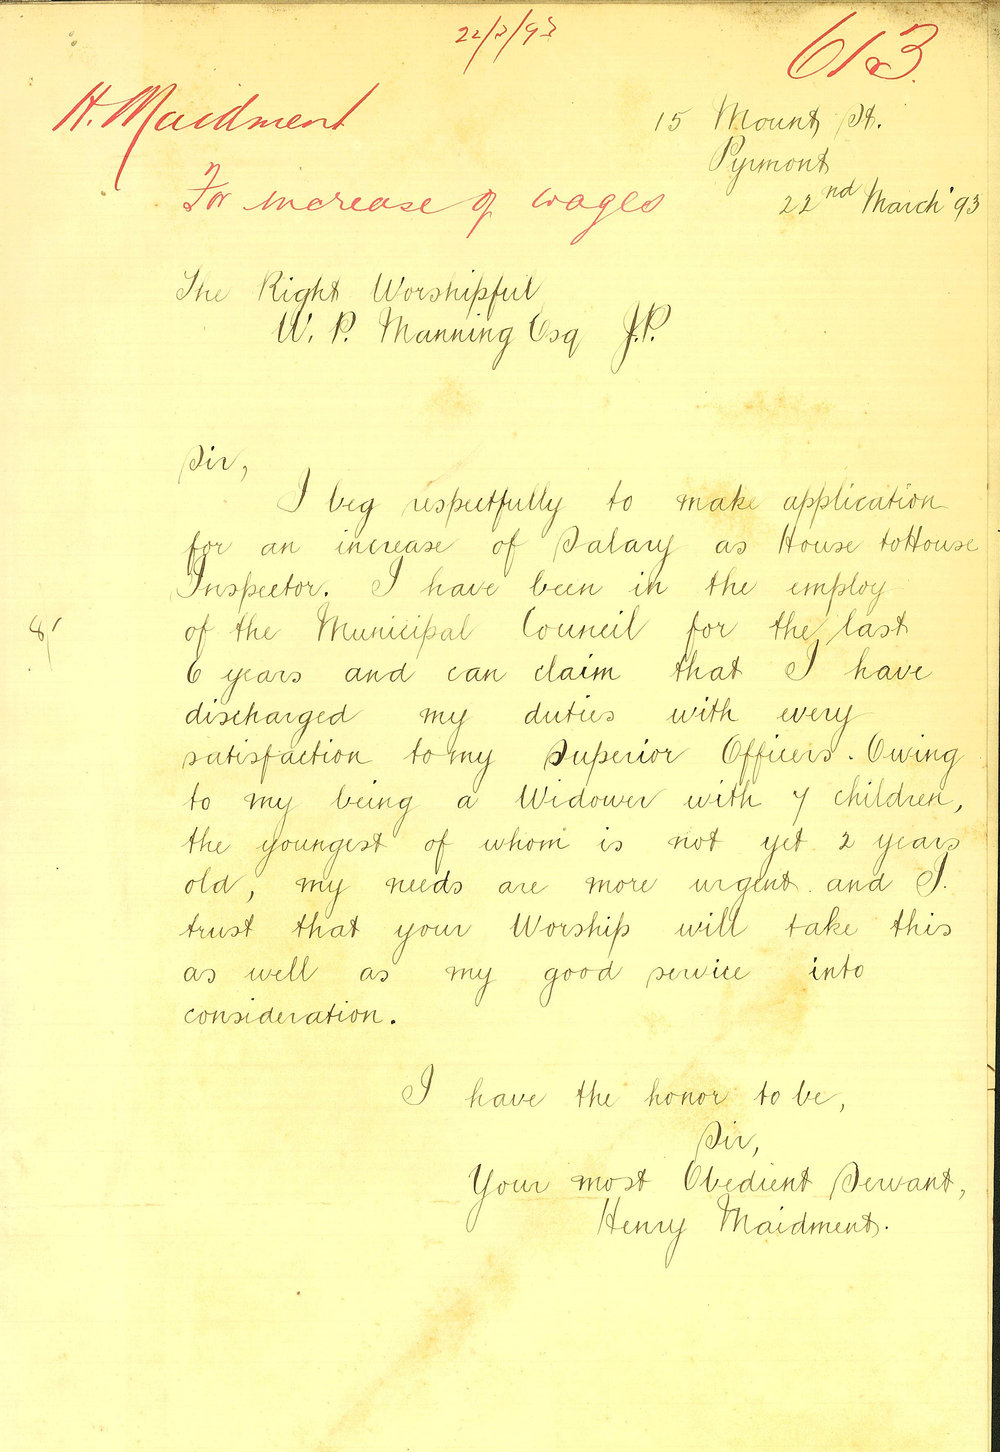 22/3/93
613
H. Maidment
15 Mount St.
Pyrmont
For increase of wages
22nd March '93
The Right Worshipful
W. P. Manning Esq J.P.
Sir,
I beg respectfully to make application
for an increase of Salary as House to House
Inspector. I have been in the employ
8/
of the Municipal Council for the last
6 years and can claim that I have
discharged my duties with every
satisfaction to my Superior Officers. Owing
to my being a Widower with 7 children,
the youngest of whom is not yet 2 years
old, my needs are more urgent and I
trust that your Worship will take this
as well as my good service into
consideration.
I have the honor to be,
Sir,
Your most Obedient Servant,
Henry Maidment.